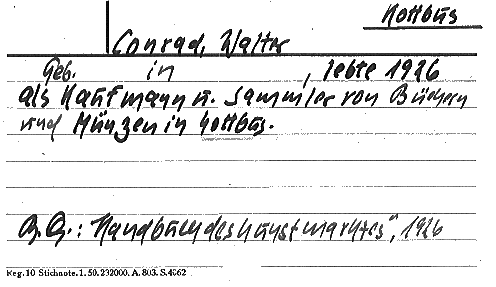 Kottbus
Conrad, Walter
Geb. in , lebte 1926
als Kaufmann u. Sammler von Büchern
und Münzen in Kottbus.
: "Handbuch des Kunstmarktes", 1926
Reg. 10 Stichnote. 1. 50. 232000. A. 803. S. 4062